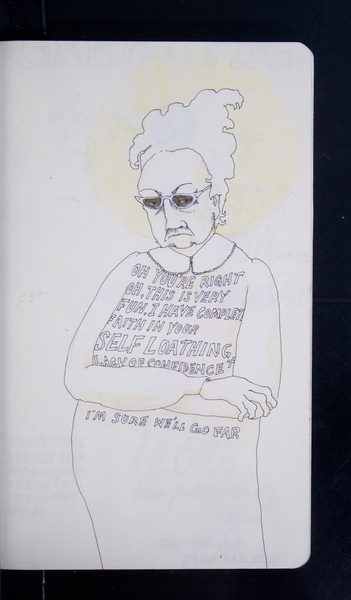 OH YOU'RE RIGHT
OH, THIS IS VERY
FUN. I HAVE COMPLET
FAITH IN YOUR
SELF LOATHING
LACK OF CONFIDENCE +
I'M SURE WE'LL GO FAR